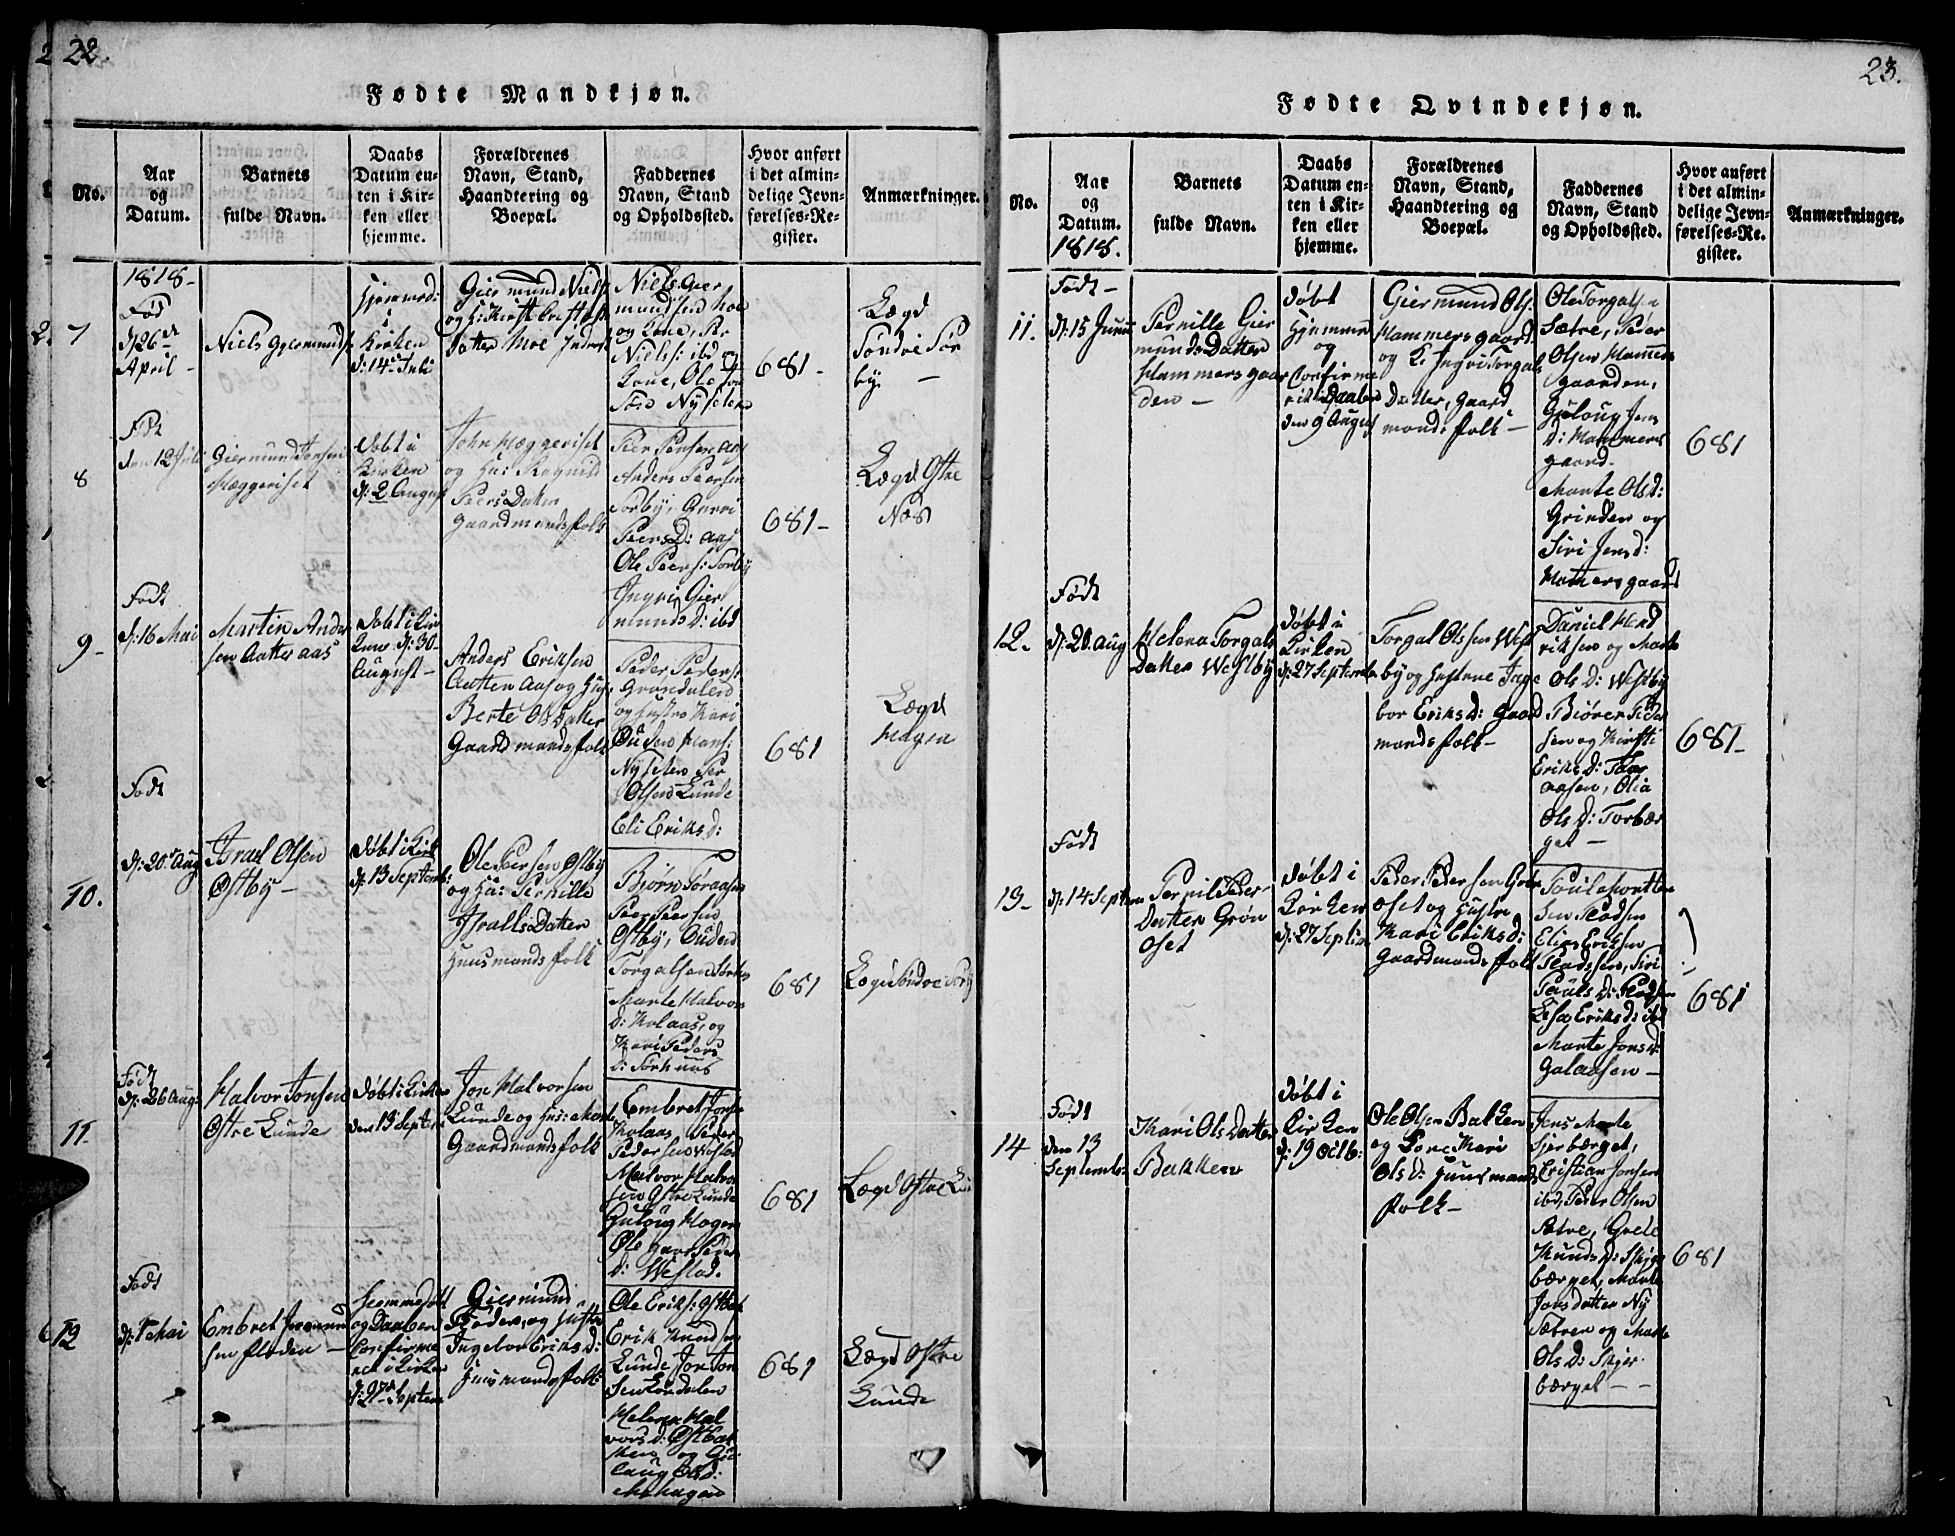 22.
Fødte Mandkjøn.
No.
Aar
og
Datum.
Barnets
fulde Navn.
Daabs
Datum en-
ten i Kir-
ken eller
hjemme.
Forældrenes
Navn, Stand,
Haandtering og
Boepæl.
Faddernes
Navn, Stand
og Opholdssted.
Hvor anført
i det almin-
delige Jevn-
førelses-Re-
gister.
Anmærkninger.
7
1818-
Fød
d: 26de
April -
Niels Gjermunds
Hjemmed:
i
Kirken
d: 14 Juli
Giermund Niels
Datter Moe
Niels Gier
mundsen Moe
og Kone, Pr.
Niels: ibd og
Kone, Ole
Nyseter
681-
Lægd
Søndre Sor
by. -
8
Født
den 12 Juli
Giermund Jonsen
Hæggeriset
Døbt i
Kirken
d: 2 August
John Hæggeriset
og Hu: Ragnild
Peers Datter
Gaardmandsfolk
Peer Persen
Anders Peersen
Sorby, Gurri
Peers D:
Ole Peers: Sorby
Ingri Gier
munds D: ibd
681-
Lægd Østre
Næs
9-
Født
d: 16 Mai
Martin Ander
sen Aatten aas
Døbt i Kir
ken d: 30
August-
Anders Eriksen
Aatten Aas og Hu:
Berte Ols Datter
Gaardmandsfolk
Peder Peders:
Grøndalen
og Hustro Kari
Nyseter Per
Olsen Lunde
Eli Eriks D:
681
Lægd
Hagen
10.
Født
d: 20de Aug
Israel Olsen
Østby-
Døbt i Kirk
d: 13 Septemb:
Ole Peersen Østby
og Hu: Pernille
Israels Datter
Huusmands folk
Bjørn Toraasen
Peer Peersen
Østby, Ouden
Torgalsen Sørhus
Marte Halvors
D: Kolaas, og
Kari Peders
D: Sørhuus
681
Lægd Søndre Sorby
11.
Født
d: 26 Aug:
Halvor Jonsen
Østre Lunde
Døbt i Kirken
den 13 Septem
Jon Halvorsen
Lunde og Hus: Marte
Gaardmandsfolk
Embret Jons:
Kolaas, Peder
Pedersen Westad
Halvor Halvor
sen Østre Lunde
Guloug Hagen
Ole gaar Peder
D: Westad.
681
Lægd Østre Lun
12
Født
d: 1 Mai
Embret Jermund
sen Floden -
Hjemmedøbt
og Daaben
Confirme
ret i Kirken
d: 27de Septem
Giermund
Floden, og Hustr
Ingebor Eriks D:
Huusmandsfolk:
Ole Eriks: Østbak
Erik Knuds:
Lunde, Jon Jon
sen Løndalen
Helene Hal
vors D: Østbak
ken og Gu
laug Ols D:
Mohagen
681
Lægd Østre
Lunde
23.
Fødte Qvindekjøn.
No.
Aar
og
Datum.
1818.
Barnets
fulde Navn.
Daabs
Datum en-
ten i Kir-
ken eller
hjemme.
Forældrenes
Navn, Stand,
Haandtering og
Boepæl.
Faddernes
Navn, Stand
og Opholdssted.
Hvor anført
i det almin-
delige Jevn-
førelses-Re-
gister.
Anmærkninger.
11.
Født-
d: 15 Junii
Pernille Gier
munds Datter
Hammersgaar
den -
døbt
Hjemme
og
Confirme
ret i Daaben
den 9 August
Giermund Ols:
Hammersgaard
og K: Ingri Torgals
Datter, Gaard
mands folk -
Ole Torgalsen
Sætre, Peder
Olsen Hamers
gaarden,
Guloug Jens
D: Hammers
gaard.
Marte Ols D:
Grinden og
Siri Jens D:
Hammersgaard
681
12.
Født
d: 20. Aug
Helena Torgals
Datter Westby
døbt i
Kirken
d: 27 Septembr
Torgal Olssen West
by og Hustrue Inge
bor Eriks D: Gaard
mandsfolk-
Daniel Hend
riksen og Marte
Ols D: Westby
Biører Peder
sen og Kirsti
Eriks D: Toar
aasen, Olia
Ols D: Torbær
get -
681-
13-
Født
d: 14 Septem
Pernil Peder-
Datter Grøn
oset
døbt i
Kirken
d: 27 Septem
Peder Pedersen Grøn
oset og Hustru
Kari Eriks D:
Gaardmands folk
Elias Eriksen
Pladssen, Siri
Pauls D: Pladsen
Lisa Eriks D: ibd
Marte Jons D:
Galaasen -
681
14
Født
den 13
Septembr:
Kari Ols Datter
Bakken
døbt i
Kirken
d: 19 Octb:
Ole Olsen Bakken
og Kone Kari
Ols D: Huusmands
folk-
Jens Marte
Sjerbærget,
Cristian Jonsen
ibd, Peder Olsen
Sætre, Grete
Knuds D: Skjer
bærget, Marte
Jonsdatter Ny
Sætren og Marte
Ols D: Skjer-
bærget - -
681